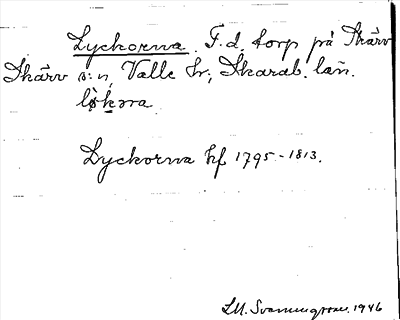 Lyckorna. F.d. torp på Skärv
Skärv s:n, Valle hr; Skarab. län.
Lyckorna hf 1795-1813.
1946